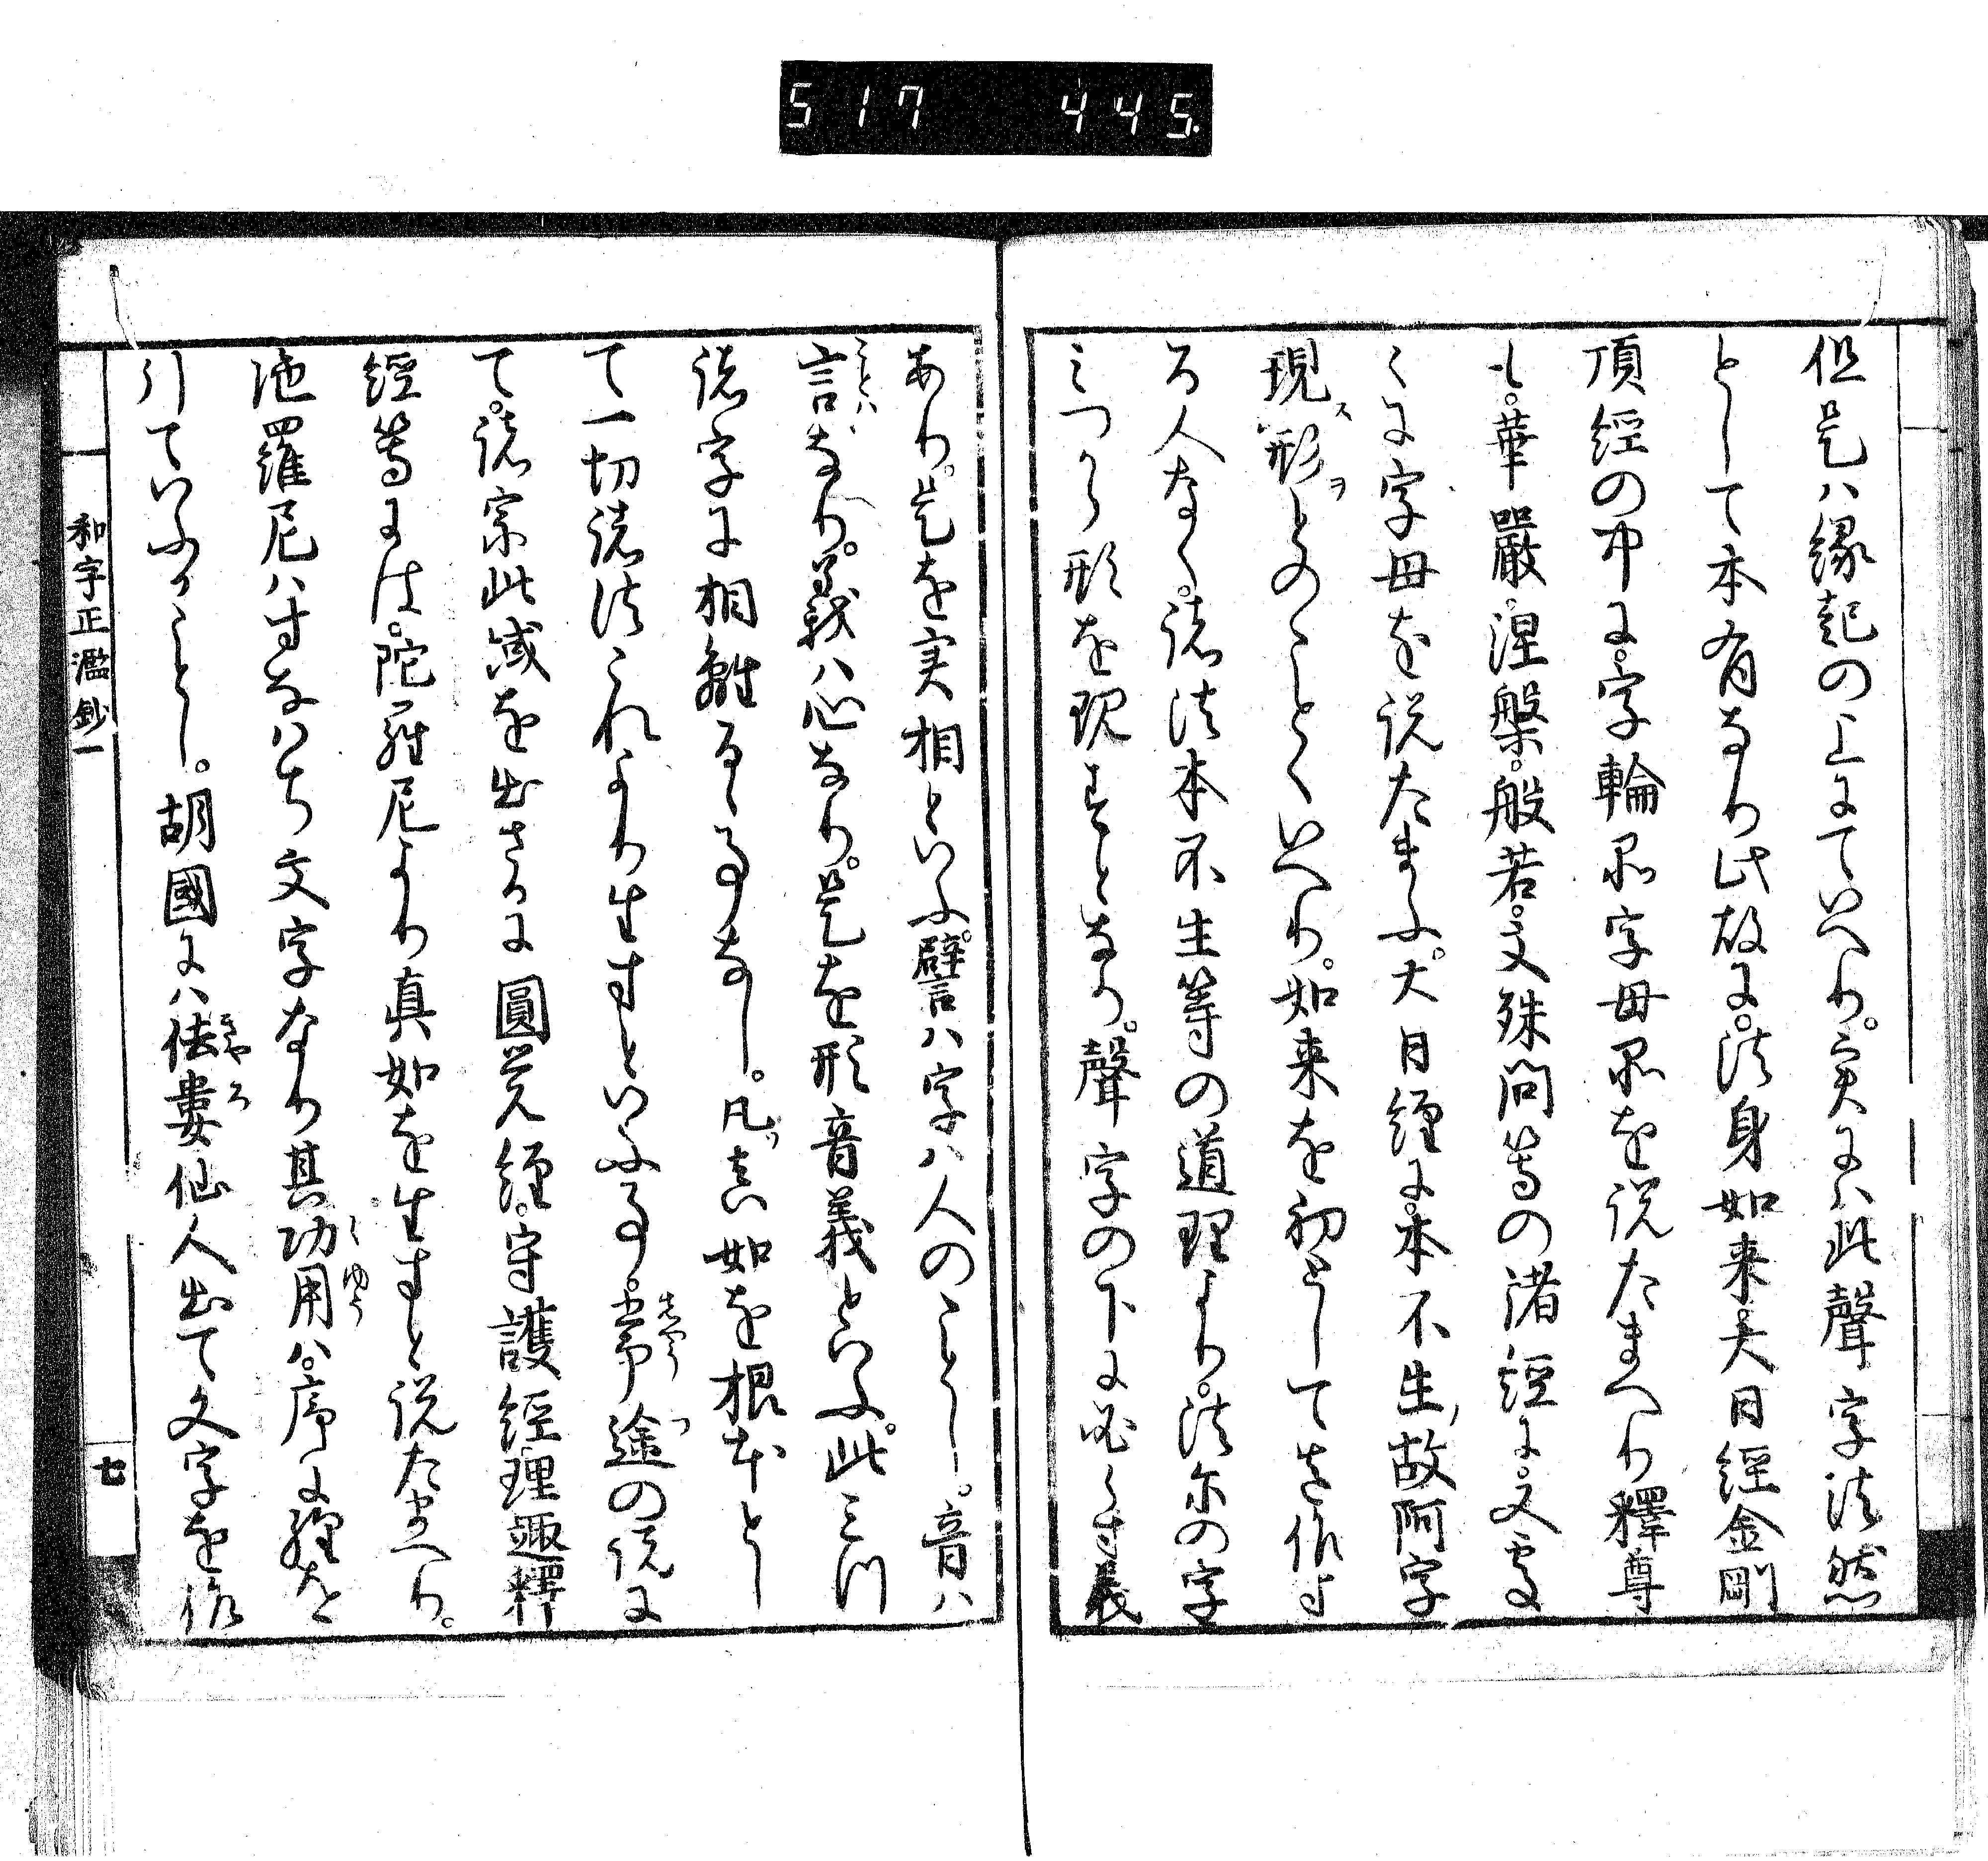 517 445.
但是ハ縁起の上にていへり。実にハ此聲字法然
として本有なり此故に。法身如来。大日経金剛
頂経の中に。字輪品字母品を説たまへり釋尊
も。華嚴。涅槃。般若。文殊問等の諸経に。又處
〻に字母を説たまふ。大日経に。本不生故阿字
現形とのことくいへり。如来を初として是作す
る人なく。諸法本不生等の道理より。法尓の字
みつから形を現すとなり。聲字の下に必す義
あり。是を実相といふ。譬ハ字ハ人のことし。音ハ
言なり。義ハ心なり。是を形音義といふ。此三つ
諸字に相離るゝ事なし。凡真如を根本とし
て一切諸法これより生すといふ事。常途の説に
て。諸宗此域を出さるに圓覚経。守護経理趣釋
経等には。陀羅尼より真如を生すと説たまへり。
陁羅尼ハすなハち文字なり其功用ハ。序に経を
引ていふかことし。胡國にハ佉婁仙人出て文字を作
和字正濫鈔一
七